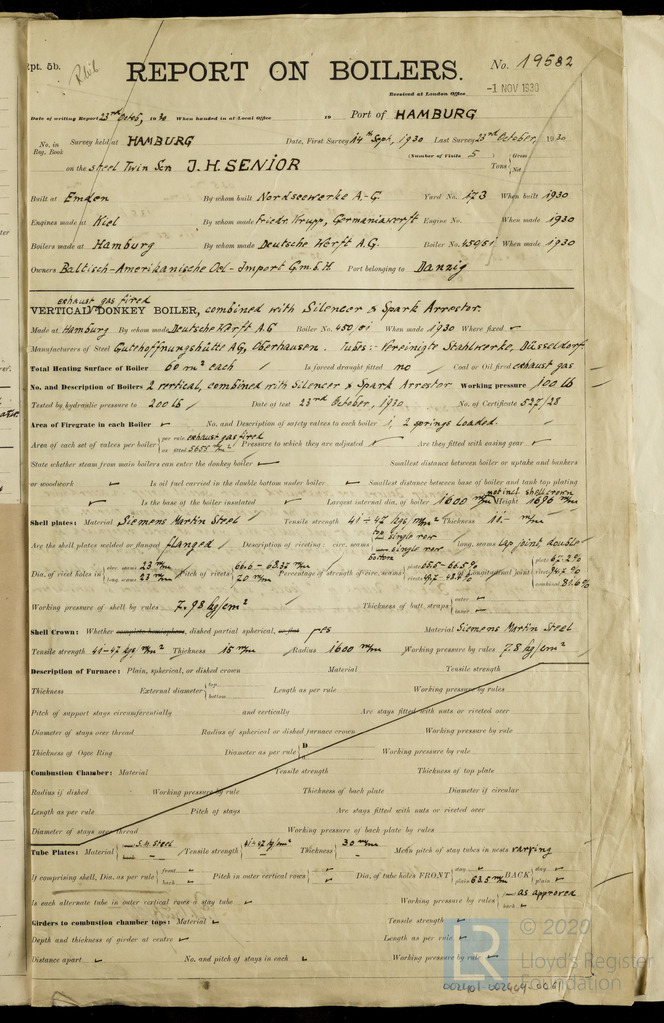 Rpt. 5b.
REPORT ON BOILERS.
No. 19582
Received at London Office
-1 NOV 1930
Date of writing Report 23rd Octob, 1930 When handed in at Local Office 10 Port of HAMBURG
No. in Reg. Book Survey held at HAMBURG Date, First Survey 14th Septb, 1930 Last Survey 23rd October, 1930
on the steel Twin Scr. J. H. SENIOR (Number of Visits 5 ) Tons { Gross Net
Built at Emden By whom built Nordseewerke A.-G. Yard No. 173 When built 1930
Engines made at Kiel By whom made Friedr. Krupp, Germaniawerft Engine No. When made 1930
Boilers made at Hamburg By whom made Deutsche Werft A.G. Boiler No. 450/51 When made 1930
Owners Baltisch-Amerikanische Oel-Import G.m.b.H. Port belonging to Danzig
exhaust gas fired
VERTICAL DONKEY BOILER, combined with Silencer & Spark Arrestor.
Made at Hamburg By whom made Deutsche Werft A.G Boiler No. 450/51 When made 1930 Where fixed
Manufacturers of Steel Gutehoffnungshütte AG, Oberhausen. Tubes:- Vereinigte Stahlwerke, Düsseldorf
Total Heating Surface of Boiler 60 m² each Is forced draught fitted no Coal or Oil fired exhaust gas
No. and Description of Boilers 2 vertical, combined with Silencer & Spark Arrestor Working pressure 100 lb
Tested by hydraulic pressure to 200 lb Date of test 23rd October, 1930 No. of Certificate 527/28
Area of Firegrate in each Boiler No. and Description of safety valves to each boiler 1, 2 springs loaded.
Area of each set of valves per boiler { per rule exhaust gas fired as fitted 5655 m/m² Pressure to which they are adjusted Are they fitted with easing gear
State whether steam from main boilers can enter the donkey boiler Smallest distance between boiler or uptake and bunkers
or woodwork Is oil fuel carried in the double bottom under boiler Smallest distance between base of boiler and tank top plating
Is the base of the boiler insulated Largest internal dia. of boiler 1600 m/m Height not incl. shell crown 1696 m/m
Shell plates: Material Siemens Martin Steel Tensile strength 41-47 kgs m/m² Thickness 11.- m/m
Are the shell plates welded or flanged flanged Description of riveting: circ. seams { top single row bottom single row long. seams lap joint, double
Dia. of rivet holes in { circ. seams 23 m/m long. seams 23 m/m Pitch of rivets { 66.6 - 68.37 m/m 70 m/m Percentage of strength of circ. seams { plate 65.5 - 66.5 % rivets 49.7 - 48.4 % of Longitudinal joint { plate 67.2 % rivets 94.7 % combined 81.6 %
Working pressure of shell by rules 7.98 kg/cm² Thickness of butt straps { outer inner
Shell Crown: Whether complete hemisphere, dished partial spherical, or flat yes Material Siemens Martin Steel
Tensile strength 41-47 kgs/m/m² Thickness 15 m/m Radius 1600 m/m Working pressure by rules 7.8 kg/cm²
Description of Furnace: Plain, spherical, or dished crown Material Tensile strength
Thickness External diameter { top bottom Length as per rule Working pressure by rules
Pitch of support stays circumferentially and vertically Are stays fitted with nuts or riveted over
Diameter of stays over thread Radius of spherical or dished furnace crown Working pressure by rule
Thickness of Ogee Ring Diameter as per rule { D d Working pressure by rule
Combustion Chamber: Material Tensile strength Thickness of top plate
Radius if dished Working pressure by rule Thickness of back plate Diameter if circular
Length as per rule Pitch of stays Are stays fitted with nuts or riveted over
Diameter of stays over thread Working pressure of back plate by rules
Tube Plates: Material { front S.M. Steel back Tensile strength 41-47 kg/m² Thickness 30 m/m Mean pitch of stay tubes in nests varying
If comprising shell, Dia. as per rule { front back Pitch in outer vertical rows Dia. of tube holes FRONT { stay plain 63.5 m/m BACK { stay plain
Is each alternate tube in outer vertical rows a stay tube Working pressure by rules { front as approved back
Girders to combustion chamber tops: Material Tensile strength
Depth and thickness of girder at centre Length as per rule
Distance apart No. and pitch of stays in each Working pressure by rule
© 2020
Lloyd's Register
Foundation